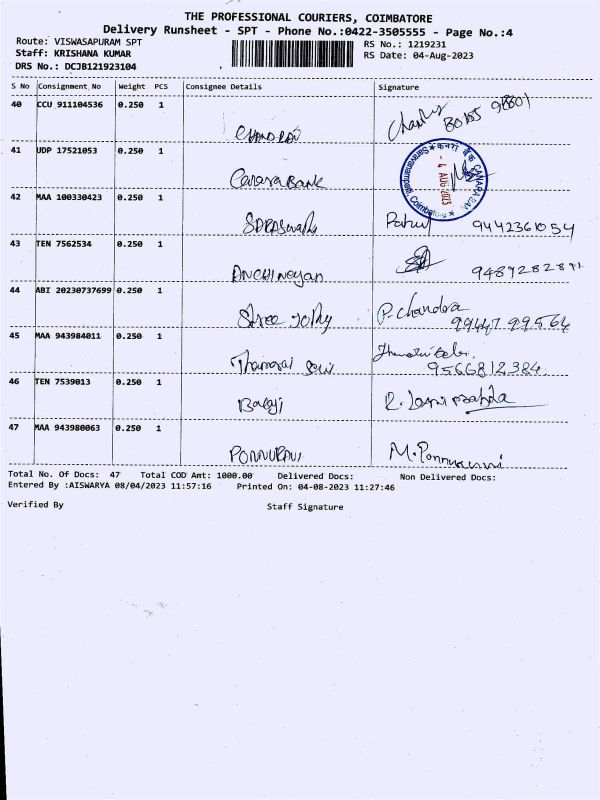 THE PROFESSIONAL COURIERS, COIMBATORE
Delivery Runsheet - SPT - Phone No.:0422-3505555 - Page No.:4
Route: VISWASAPURAM SPT
RS No.: 1219231
Staff: KRISHANA KUMAR
RS Date: 04-Aug-2023
DRS No.: DCJB121923104
S No Consignment_No Weight PCS Consignee Details Signature
40 CCU 911104536 0.250 1
41 UDP 17521053 0.250 1
Canara Bank
CANARA BANK
- 4 AUG 2023
Coimbatore
42 MAA 100330423 0.250 1
9442361054
43 TEN 7562534 0.250 1
44 ABI 20230737699 0.250 1
Shree Jothy P. Chandra
99447 99564
45 MAA 943984011 0.250 1
9566812384
46 TEN 7539013 0.250 1
Balaji
47 MAA 943980063 0.250 1
Total No. Of Docs: 47 Total COD Amt: 1000.00 Delivered Docs: Non Delivered Docs:
Entered By :AISWARYA 08/04/2023 11:57:16 Printed On: 04-08-2023 11:27:46
Verified By Staff Signature